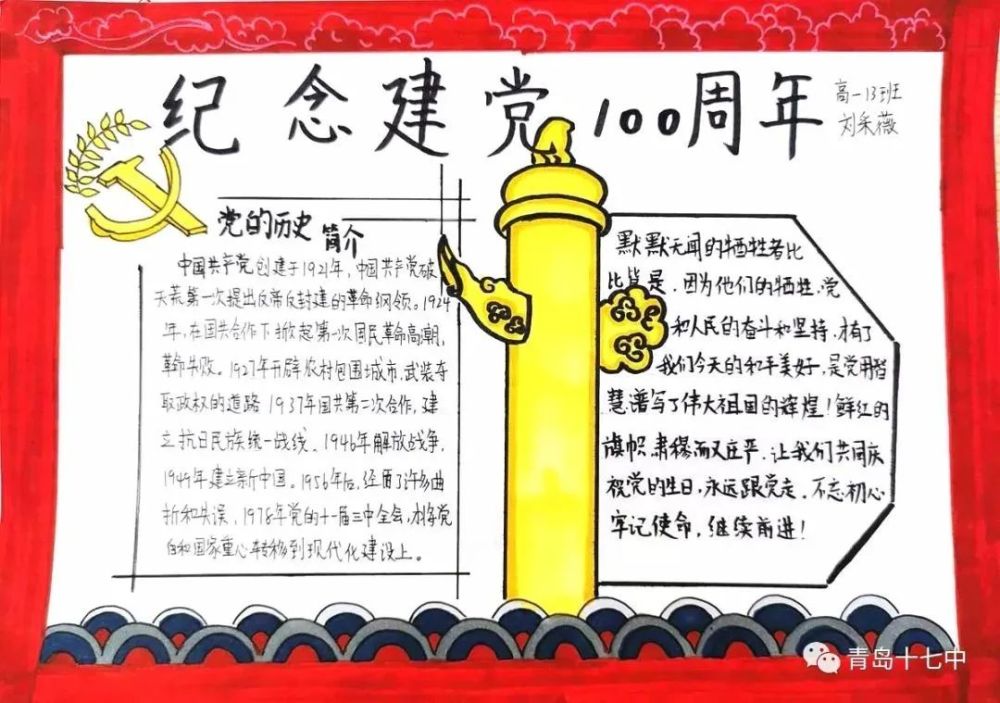 纪念建党100周年
高一13班
刘采薇
党的历史简介
中国共产党创建于1921年，中国共产党破
天荒第一次提出反帝反封建的革命纲领。1924
年，在国共合作下掀起第一次国民革命高潮，
革命失败。1927年开辟农村包围城市、武装夺
取政权的道路 1937年国共第二次合作，建
立抗日民族统一战线、1946年解放战争，
1949年建立新中国。1956年后，经历了许多曲
折和失误、1978年党的十一届三中全会，才将党
和国家重心转移到现代化建设上。
默默无闻的牺牲者比
比皆是，因为他们的牺牲、党
和人民的奋斗和坚持，才有了
我们今天的和平美好，是党用智
慧谱写了伟大祖国的辉煌！鲜红的
旗帜，肃穆而又庄严，让我们共同庆
祝党的生日，永远跟党走，不忘初心
牢记使命，继续前进！
青岛十七中